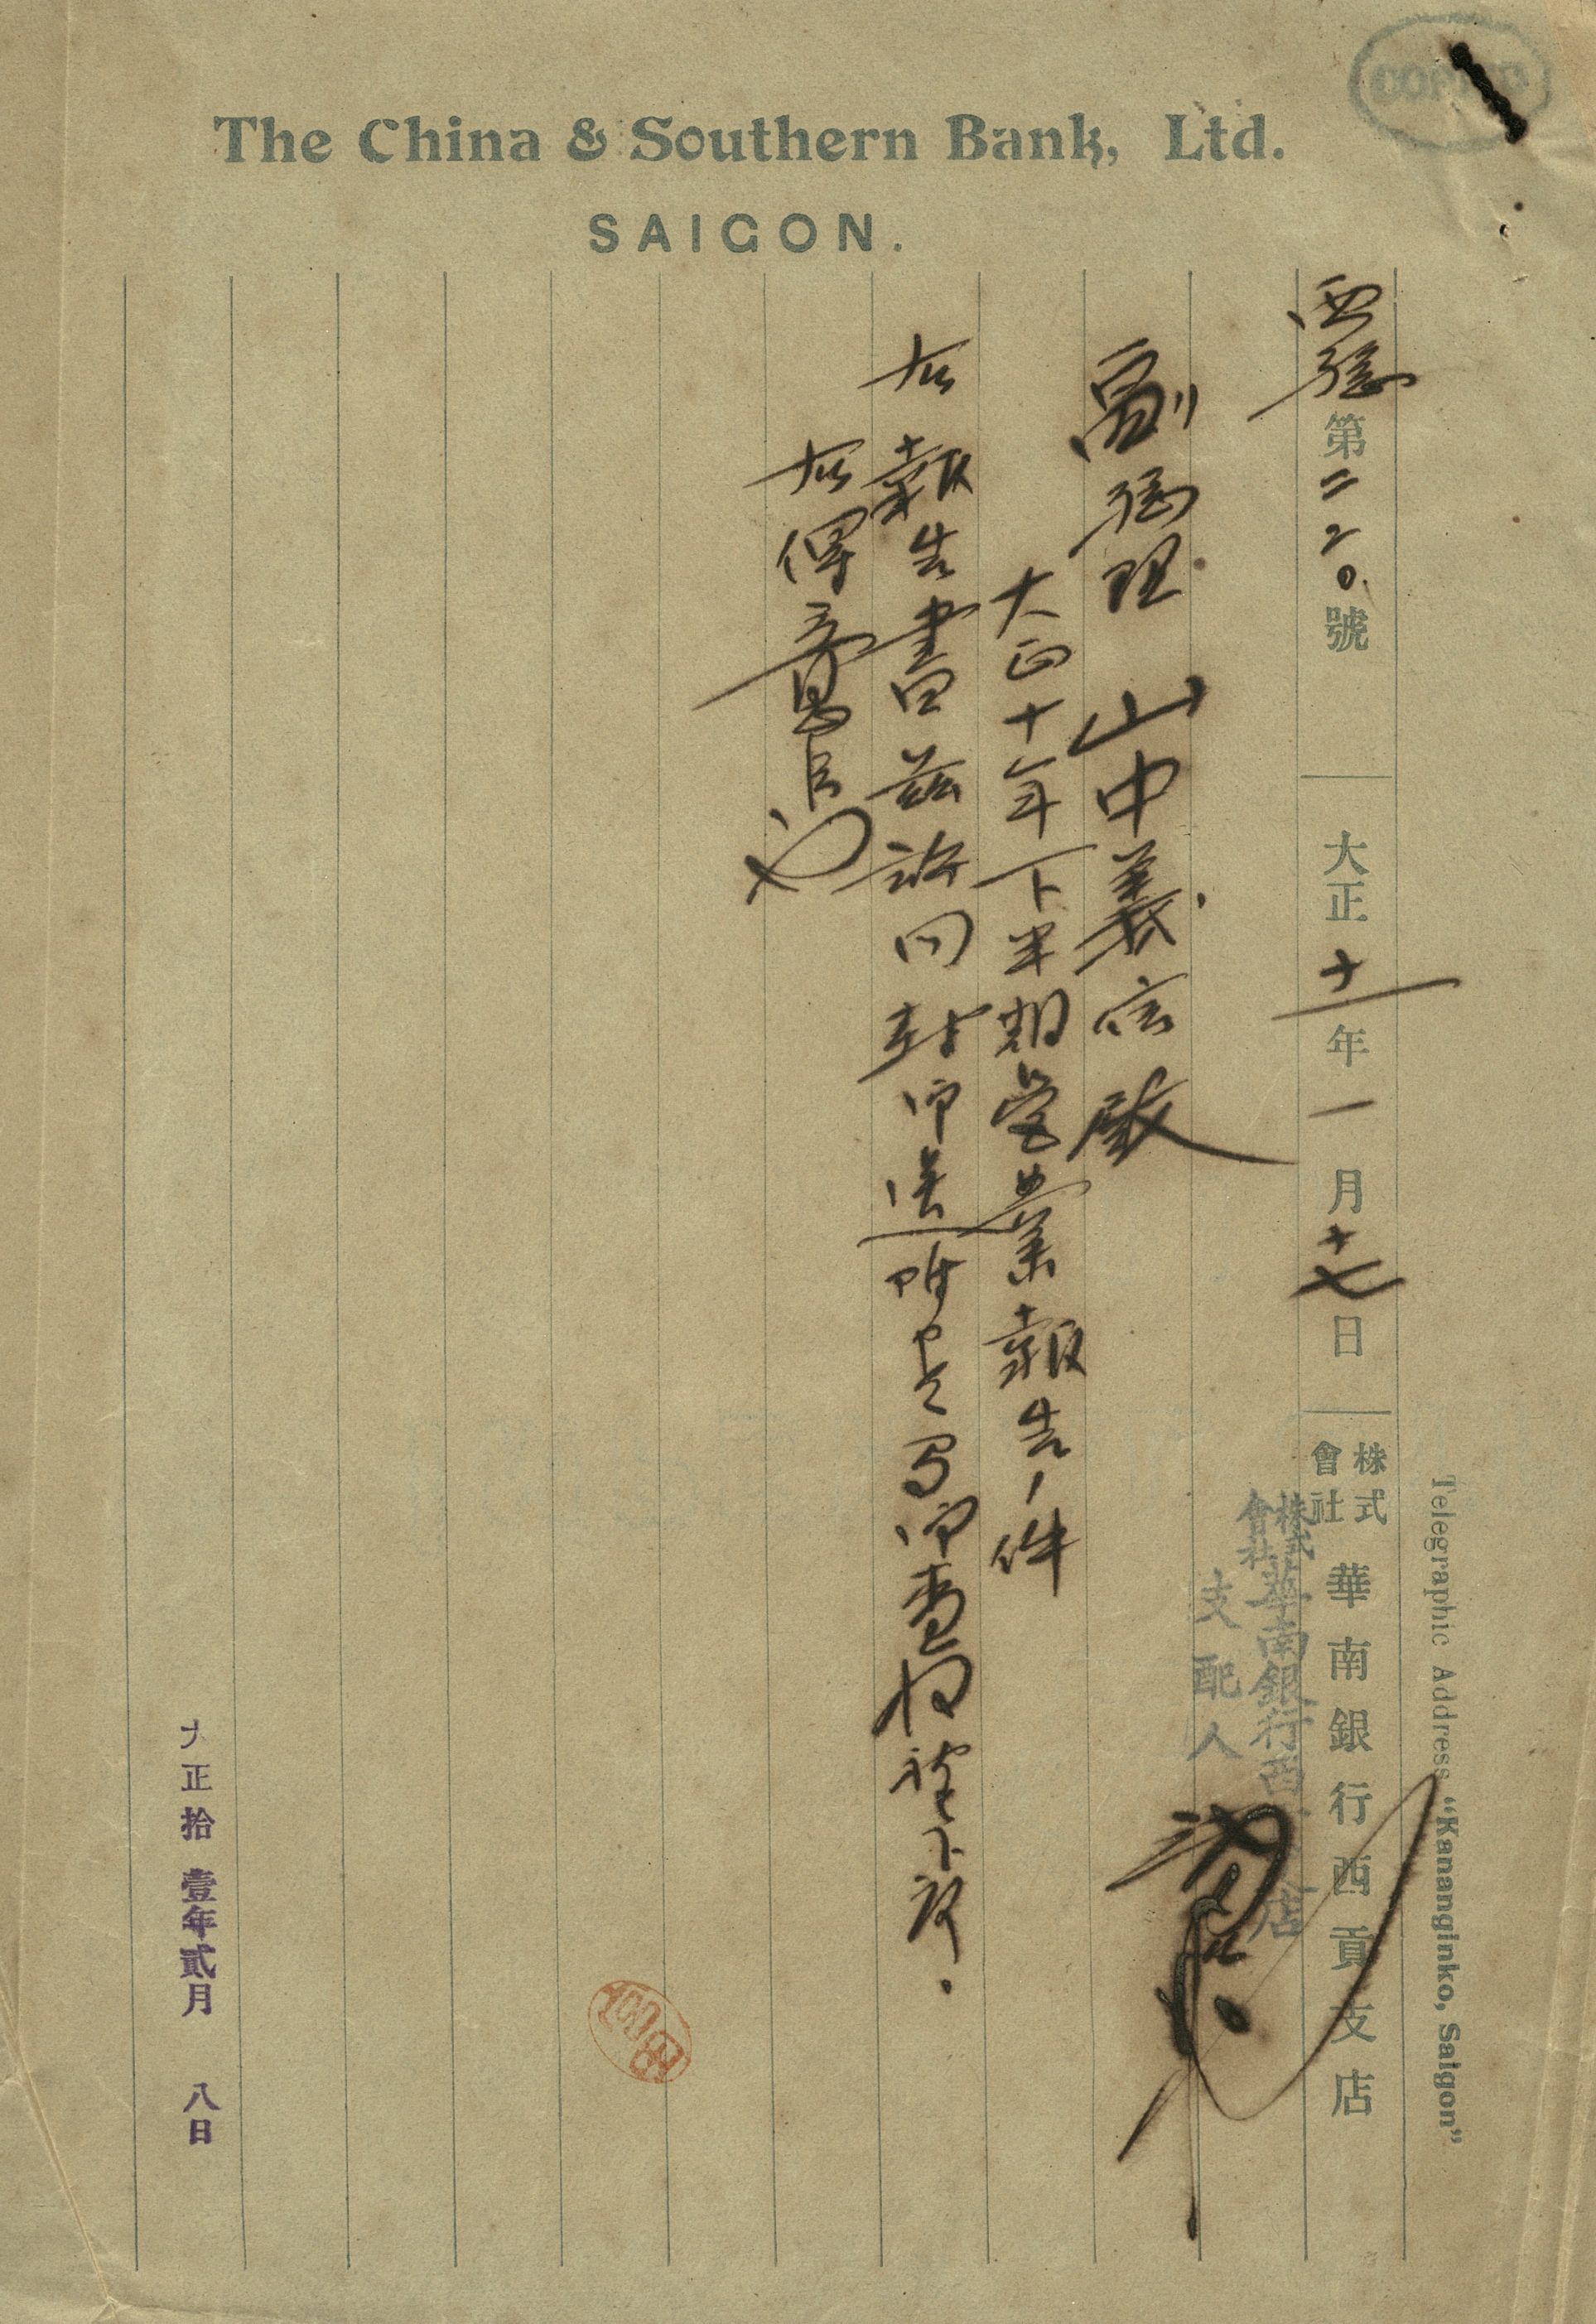 COPIED
The China & Southern Bank, Ltd.
SAIGON.
Telegraphic Address "Kananginko, Saigon"
西總第二二〇號 大正十一年一月十七日 株式會社 華南銀行西貢支店
株式會社華南銀行西 店
支配人
副總理 山中義信殿
大正十年下半期營業報告ノ件
右報告書茲許同封御送附 候間御査收 下度.
右得貴意候也
大正拾壹年貳月 八日